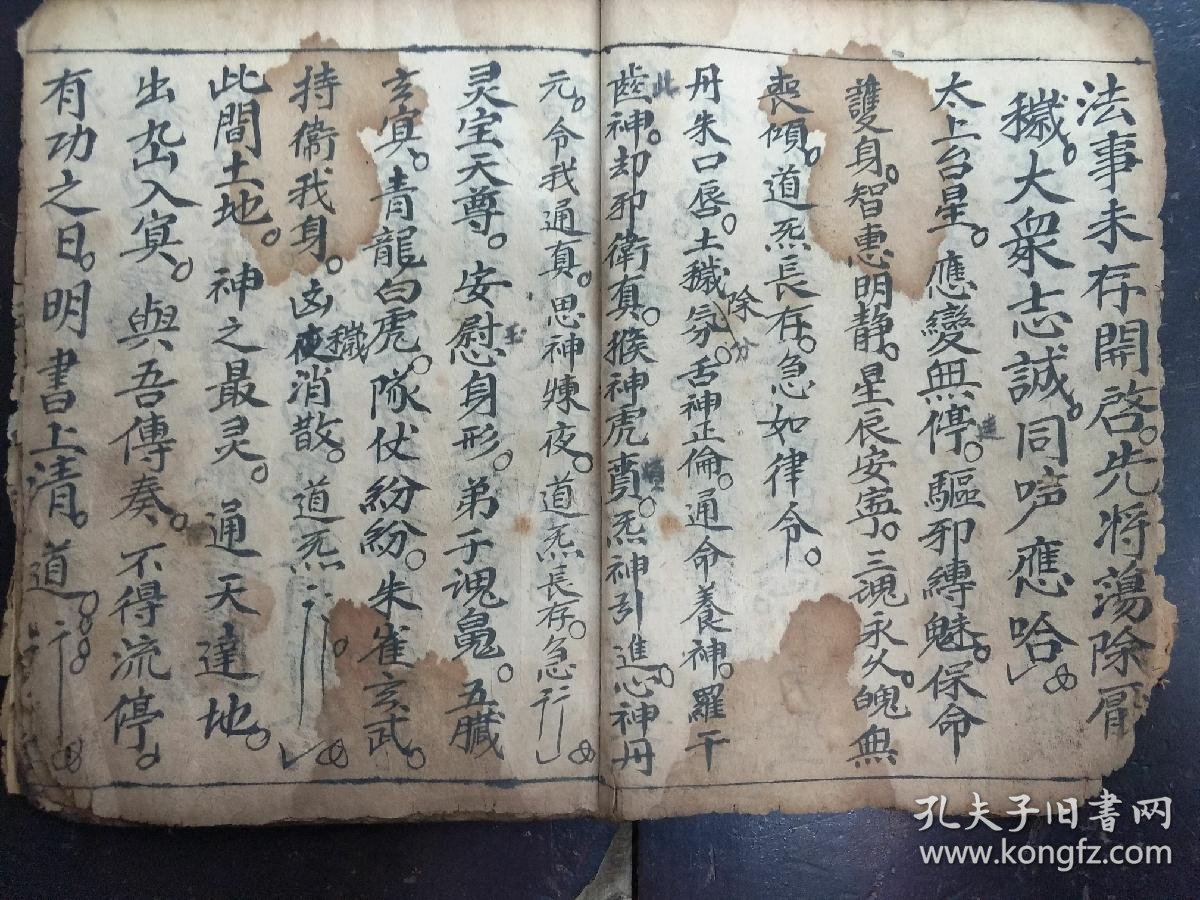 法事未存開啓。先将蕩除
穢。大衆志誠。同声應哈
太上台星。應變無停。驅邪縛魅。保命
護身。智惠明静。星辰安寧。三魂永久。魄無
喪傾。道炁長存。急如律令。
丹朱口唇。土穢除氛。舌神正倫。通命養神。羅千
齒神。却邪衛真。猴神虎賁。炁神引進。心神丹
元。令我通真。思神煉夜。道炁長存。急
灵宝天尊。安慰身形。弟子魂鬼。五臟
玄冥。青龍白虎。隊仗紛紛。朱雀玄武。
持衛我身。凶穢消散。道炁
此間土地。神之最灵。通天達地。
出入冥。與吾傳奏。不得流停。
有功之日。明書上清。道。
孔夫子旧书网
www.kongfz.com